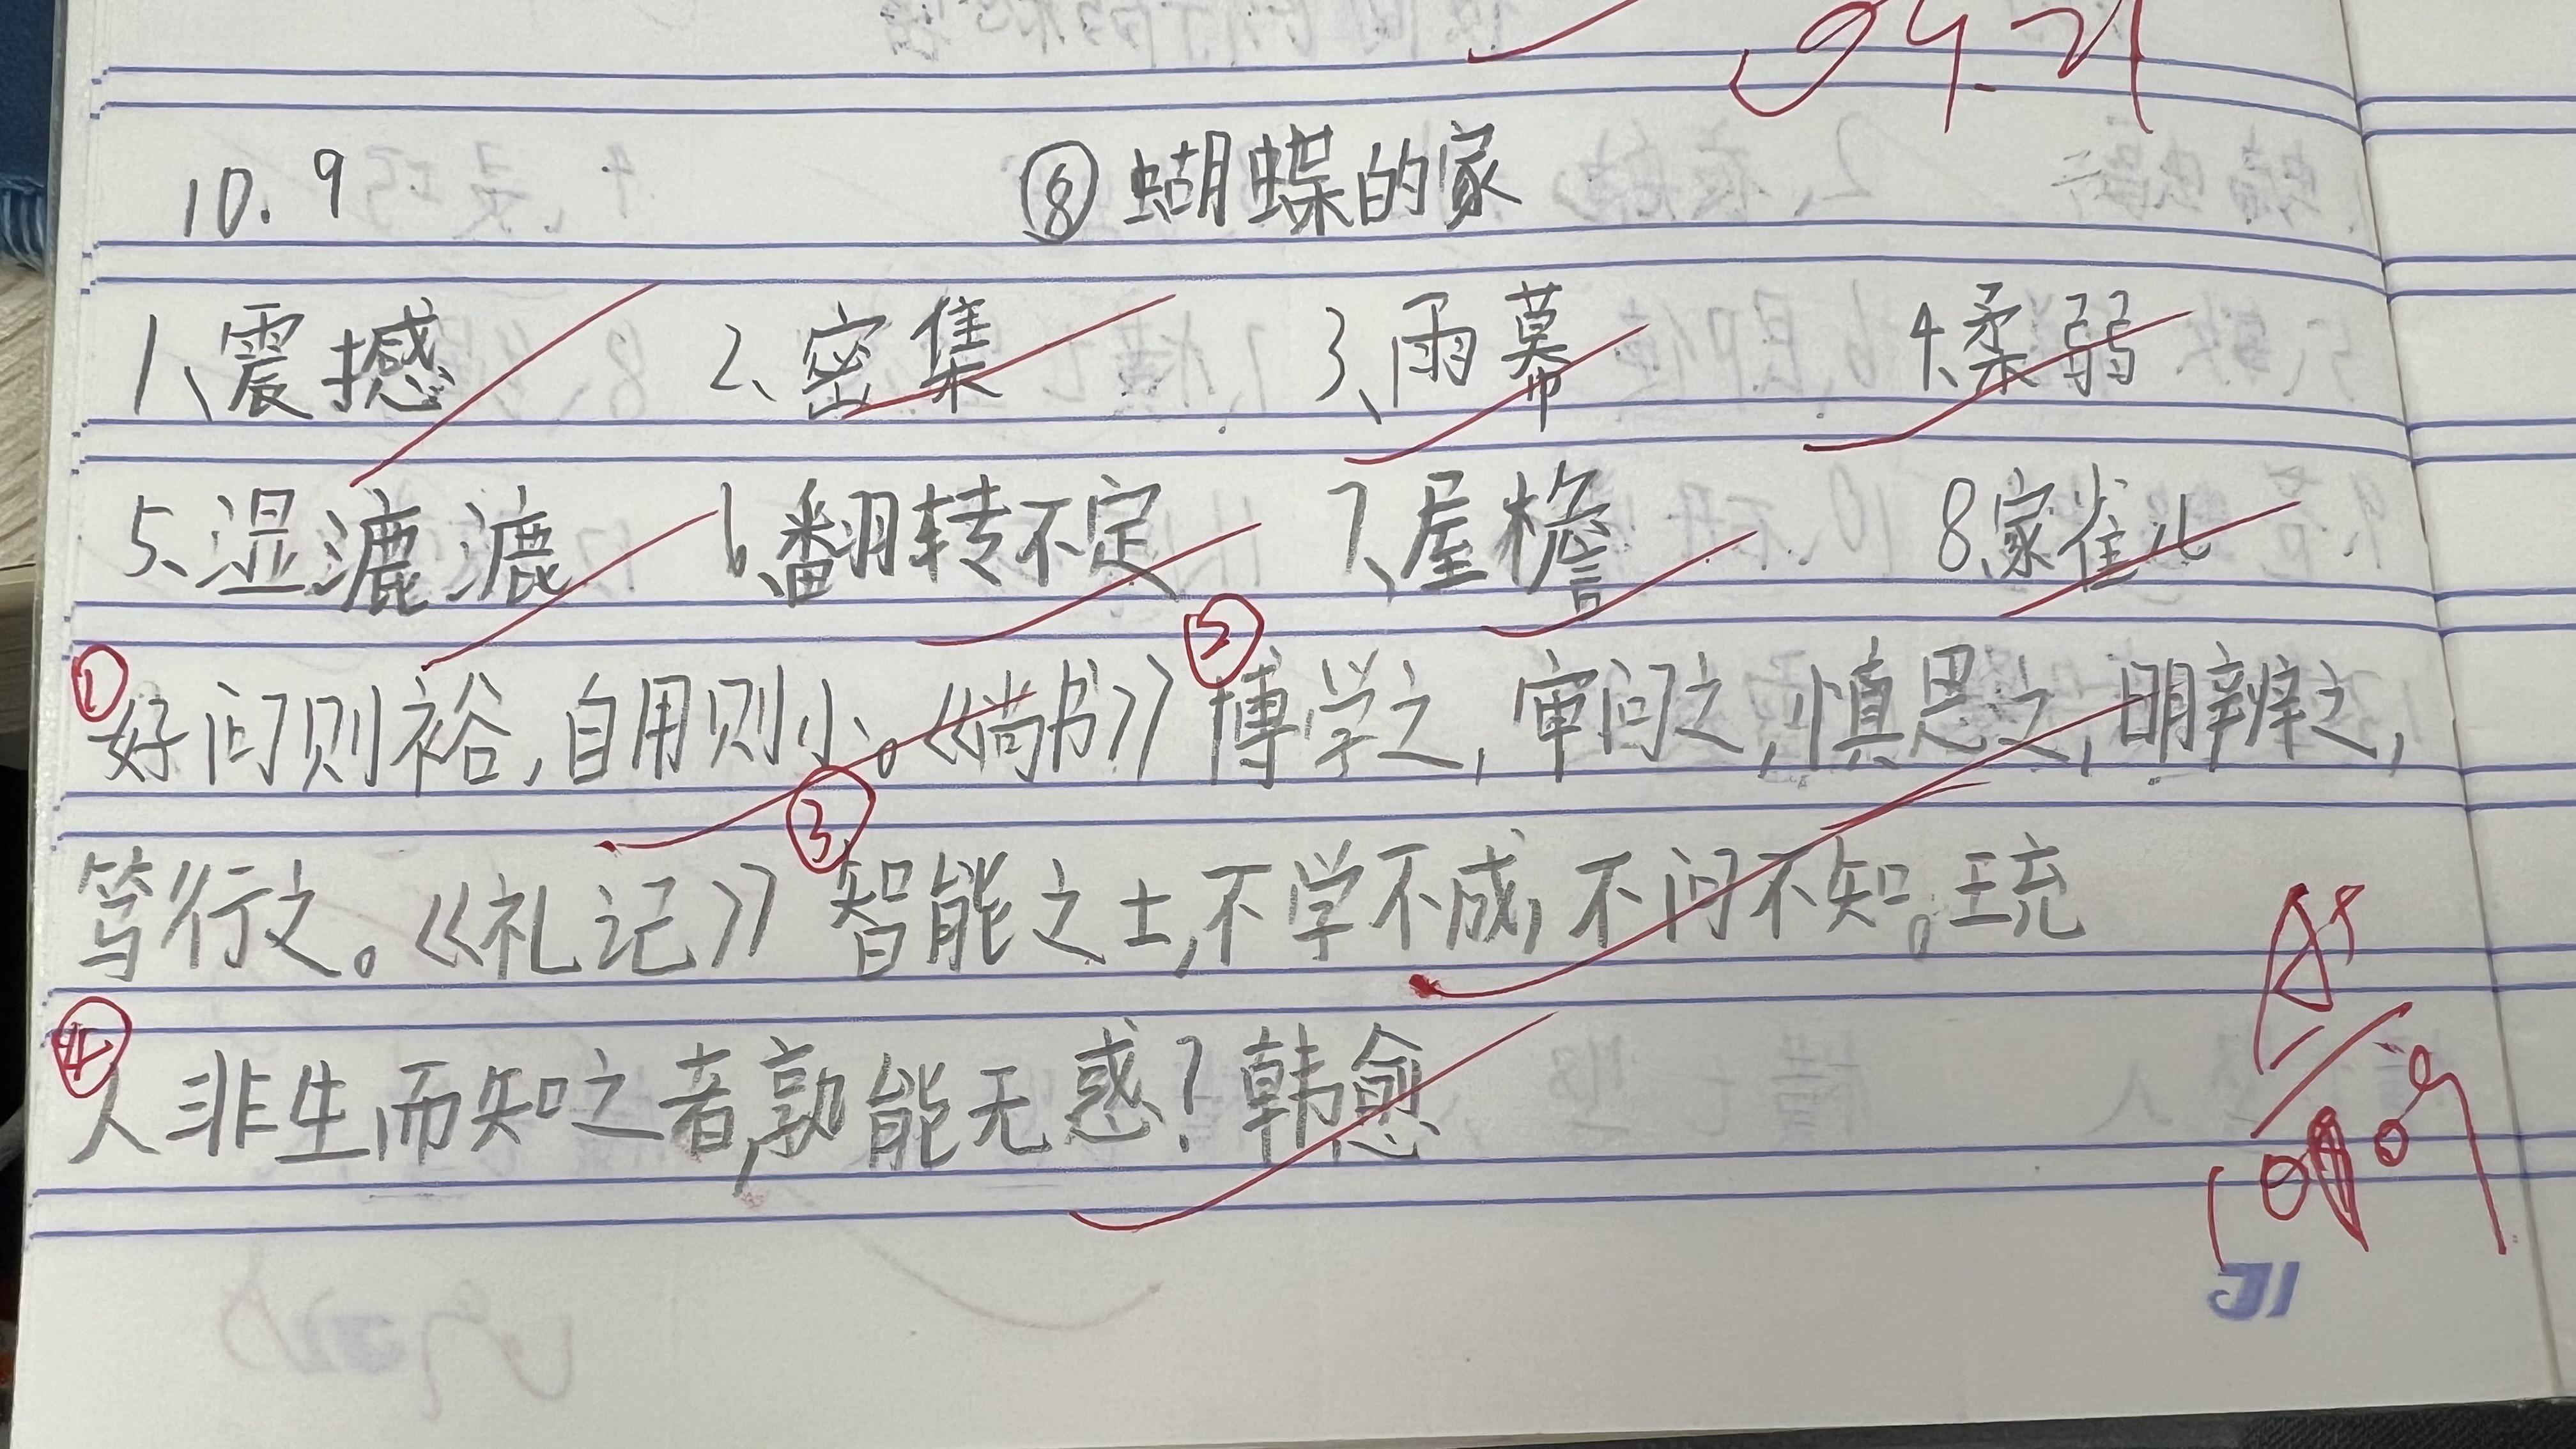 10.9 ⑧蝴蝶的家
1、震撼 2、密集 3、雨幕 4、柔弱
5、湿漉漉 6、翻转不定 7、屋檐 8、家雀儿
① 好问则裕,自用则小。《尚书》 ② 博学之,审问之,慎思之,明辨之,
笃行之。《礼记》 ③ 智能之士,不学不成,不问不知。王充
④ 人非生而知之者,孰能无惑?韩愈
A+